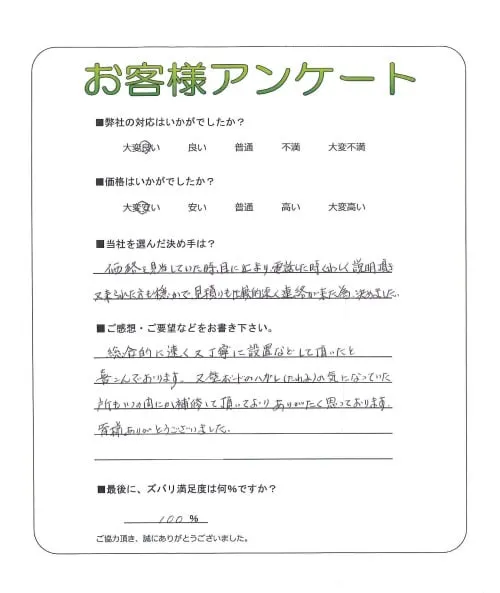 お客様アンケート
■弊社の対応はいかがでしたか？
大変良い 良い 普通 不満 大変不満
■価格はいかがでしたか？
大変安い 安い 普通 高い 大変高い
■当社を選んだ決め手は？
価格を見当していた時、目に止まり電話した時くわしく説明頂き
又来られた方も穏かで、見積りも比較的速く連絡が来た為、決めました。
■ご感想・ご要望などをお書き下さい。
総合的に速く又丁寧に設置などして頂いたと
喜こんでおります。又壁ボードのハガレ(たれみ)の気になっていた
所もいつの間にか補修して頂いており ありがたく思っております。
皆様ありがとうございました。
■最後に、ズバリ満足度は何%ですか？
100 %
ご協力頂き、誠にありがとうございました。